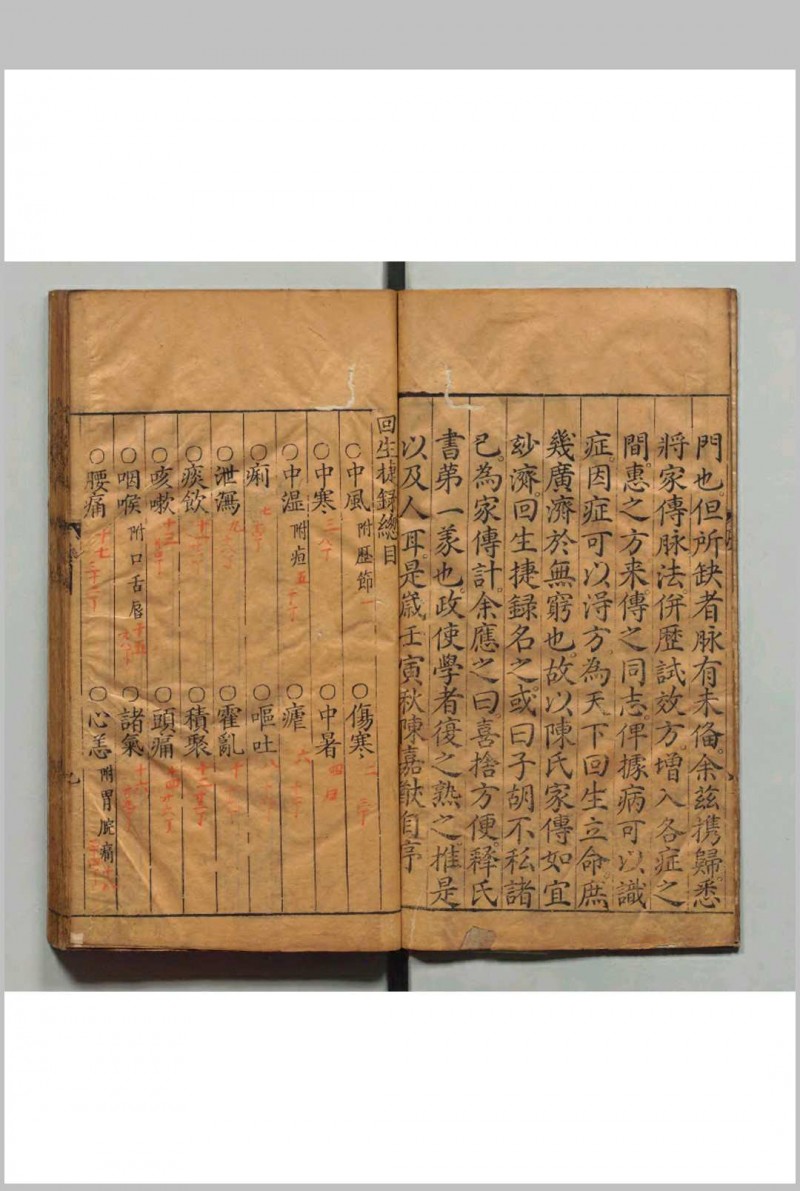 門也但所缺者脉有未俻余茲携歸悉
將家傳脉法併歷試效方增入各症之
間惠之方来傳之同志俾據病可以識
症因症可以淂方為天下回生立命庶
幾廣濟於無窮也故以陳氏家傳如宜
玅濟回生捷録名之或曰子胡不私諸
已為家傳計余應之曰喜捨方便釋氏
書第一義也政使學者復之熟之推是
以及人耳是歳壬寅秋陳嘉猷自序
回生捷録總目
○中風附歷節一 ○傷寒二
○中寒三 ○中暑四
○中湿附疸五 ○瘧六
○痢七 ○嘔吐八
○泄瀉九 ○霍亂十
○痰飲十一 ○積聚十二
○咳嗽十三 ○頭痛十四
○咽喉附口舌唇十五 ○諸氣十六
○腰痛十七 ○心恙附胃脘痛十八